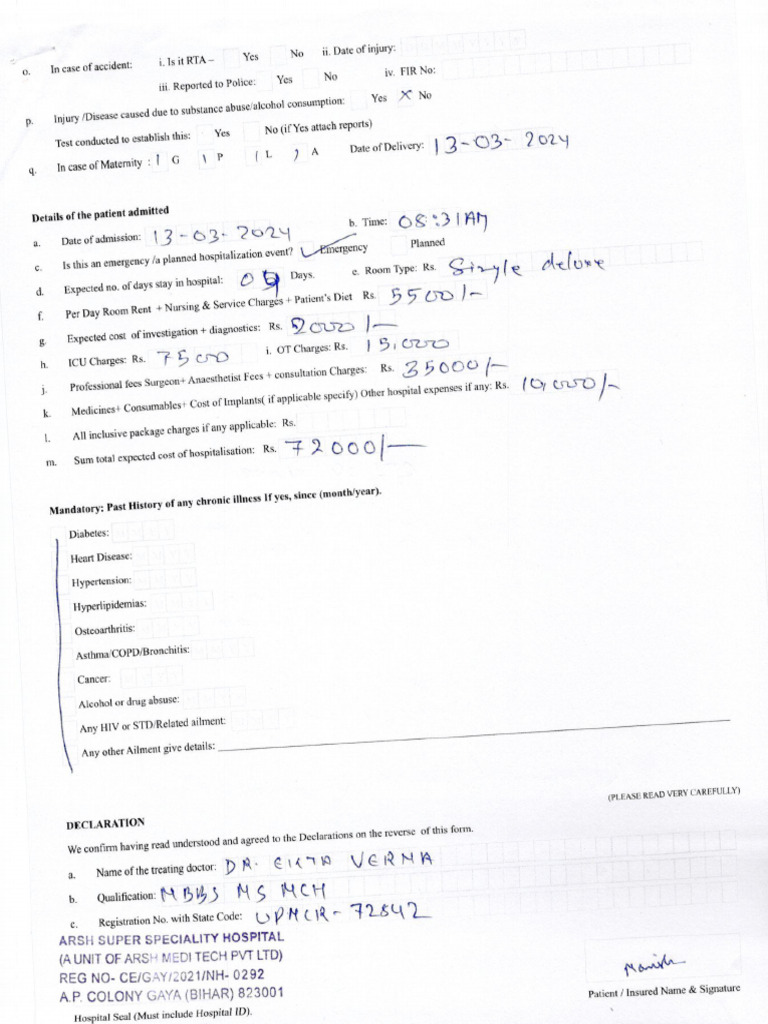 o. In case of accident: i. Is it RTA – Yes No ii. Date of injury:
iii. Reported to Police: Yes No iv. FIR No:
p. Injury /Disease caused due to substance abuse/alcohol consumption: Yes X No
Test conducted to establish this: Yes No (if Yes attach reports)
q. In case of Maternity : 1 G 1 P 1 L 1 A Date of Delivery: 13-03-2024
Details of the patient admitted
a. Date of admission: 13-03-2024 b. Time: 08:31AM
c. Is this an emergency /a planned hospitalization event? ✓ Emergency Planned
d. Expected no. of days stay in hospital: 05 Days. e. Room Type: Rs. Single deluxe
f. Per Day Room Rent + Nursing & Service Charges + Patient's Diet Rs. 5500/-
g. Expected cost of investigation + diagnostics: Rs. 2000/-
h. ICU Charges: Rs. 7500 i. OT Charges: Rs. 15,000
j. Professional fees Surgeon+ Anaesthetist Fees + consultation Charges: Rs. 35000/-
k. Medicines+ Consumables+ Cost of Implants( if applicable specify) Other hospital expenses if any: Rs. 10,000/-
l. All inclusive package charges if any applicable: Rs.
m. Sum total expected cost of hospitalisation: Rs. 72000/-
Mandatory: Past History of any chronic illness If yes, since (month/year).
Diabetes:
Heart Disease:
Hypertension:
Hyperlipidemias:
Osteoarthritis:
Asthma/COPD/Bronchitis:
Cancer:
Alcohol or drug abuse:
Any HIV or STD/Related ailment:
Any other Ailment give details:
(PLEASE READ VERY CAREFULLY)
DECLARATION
We confirm having read understood and agreed to the Declarations on the reverse of this form.
a. Name of the treating doctor: DR. EKTA VERMA
b. Qualification: MBBS MS MCH
c. Registration No. with State Code: UPMCIR-72842
ARSH SUPER SPECIALITY HOSPITAL
(A UNIT OF ARSH MEDI TECH PVT LTD)
REG NO- CE/GAY/2021/NH- 0292
A.P. COLONY GAYA (BIHAR) 823001
Manish
Patient / Insured Name & Signature
Hospital Seal (Must include Hospital ID).